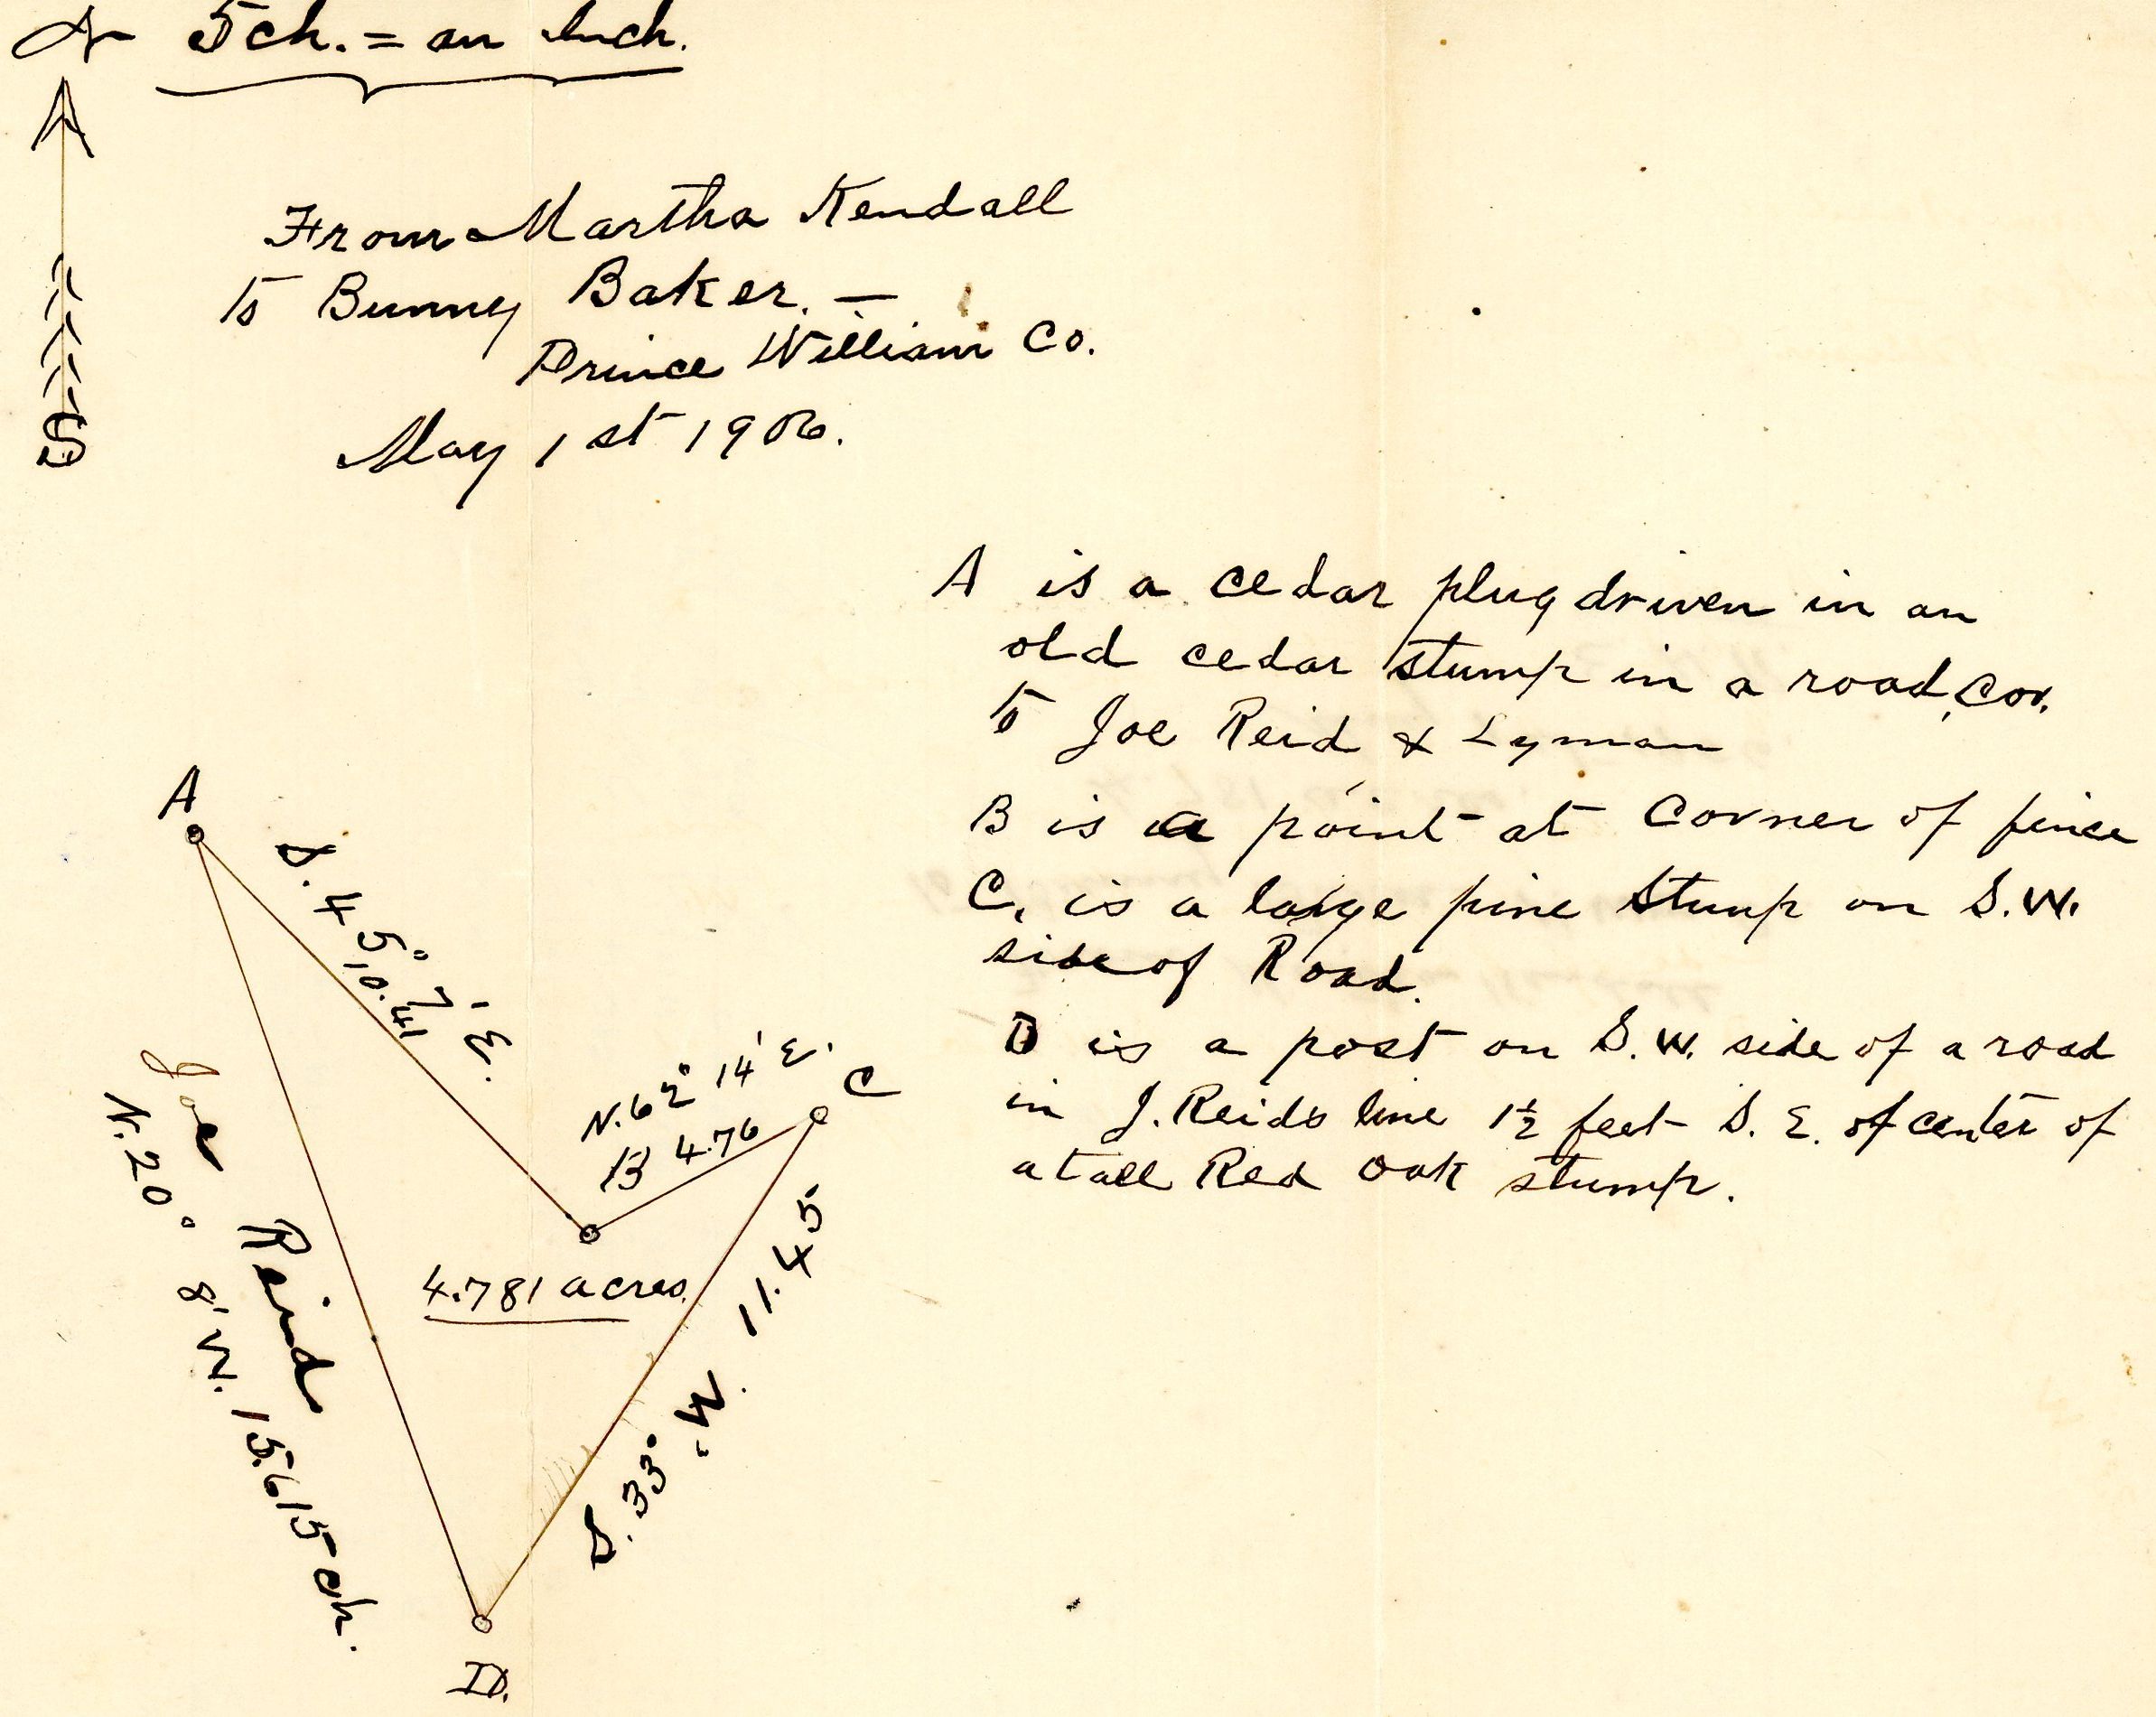 N 5 ch. = an Inch.
From Martha Kendall
to Bunny Baker. —
Prince William Co.
May 1st 1906.
S
A is a cedar plug driven in an
old cedar stump in a road, cor.
to Joe Reid & Lyman
B is a point at corner of fence
C, is a large pine stump on S.W.
side of Road.
D is a post on S.W. side of a road
in J. Reids line 1½ feet S. E. of center of
a tall Red Oak stump.
A
S. 45° 7' E.
10.41
N. 62° 14' E.
B 4.76
C
4.781 acres.
S. 33° W. 11.45
Joe Reid
N. 20° 8' W. 15.615 ch.
D.